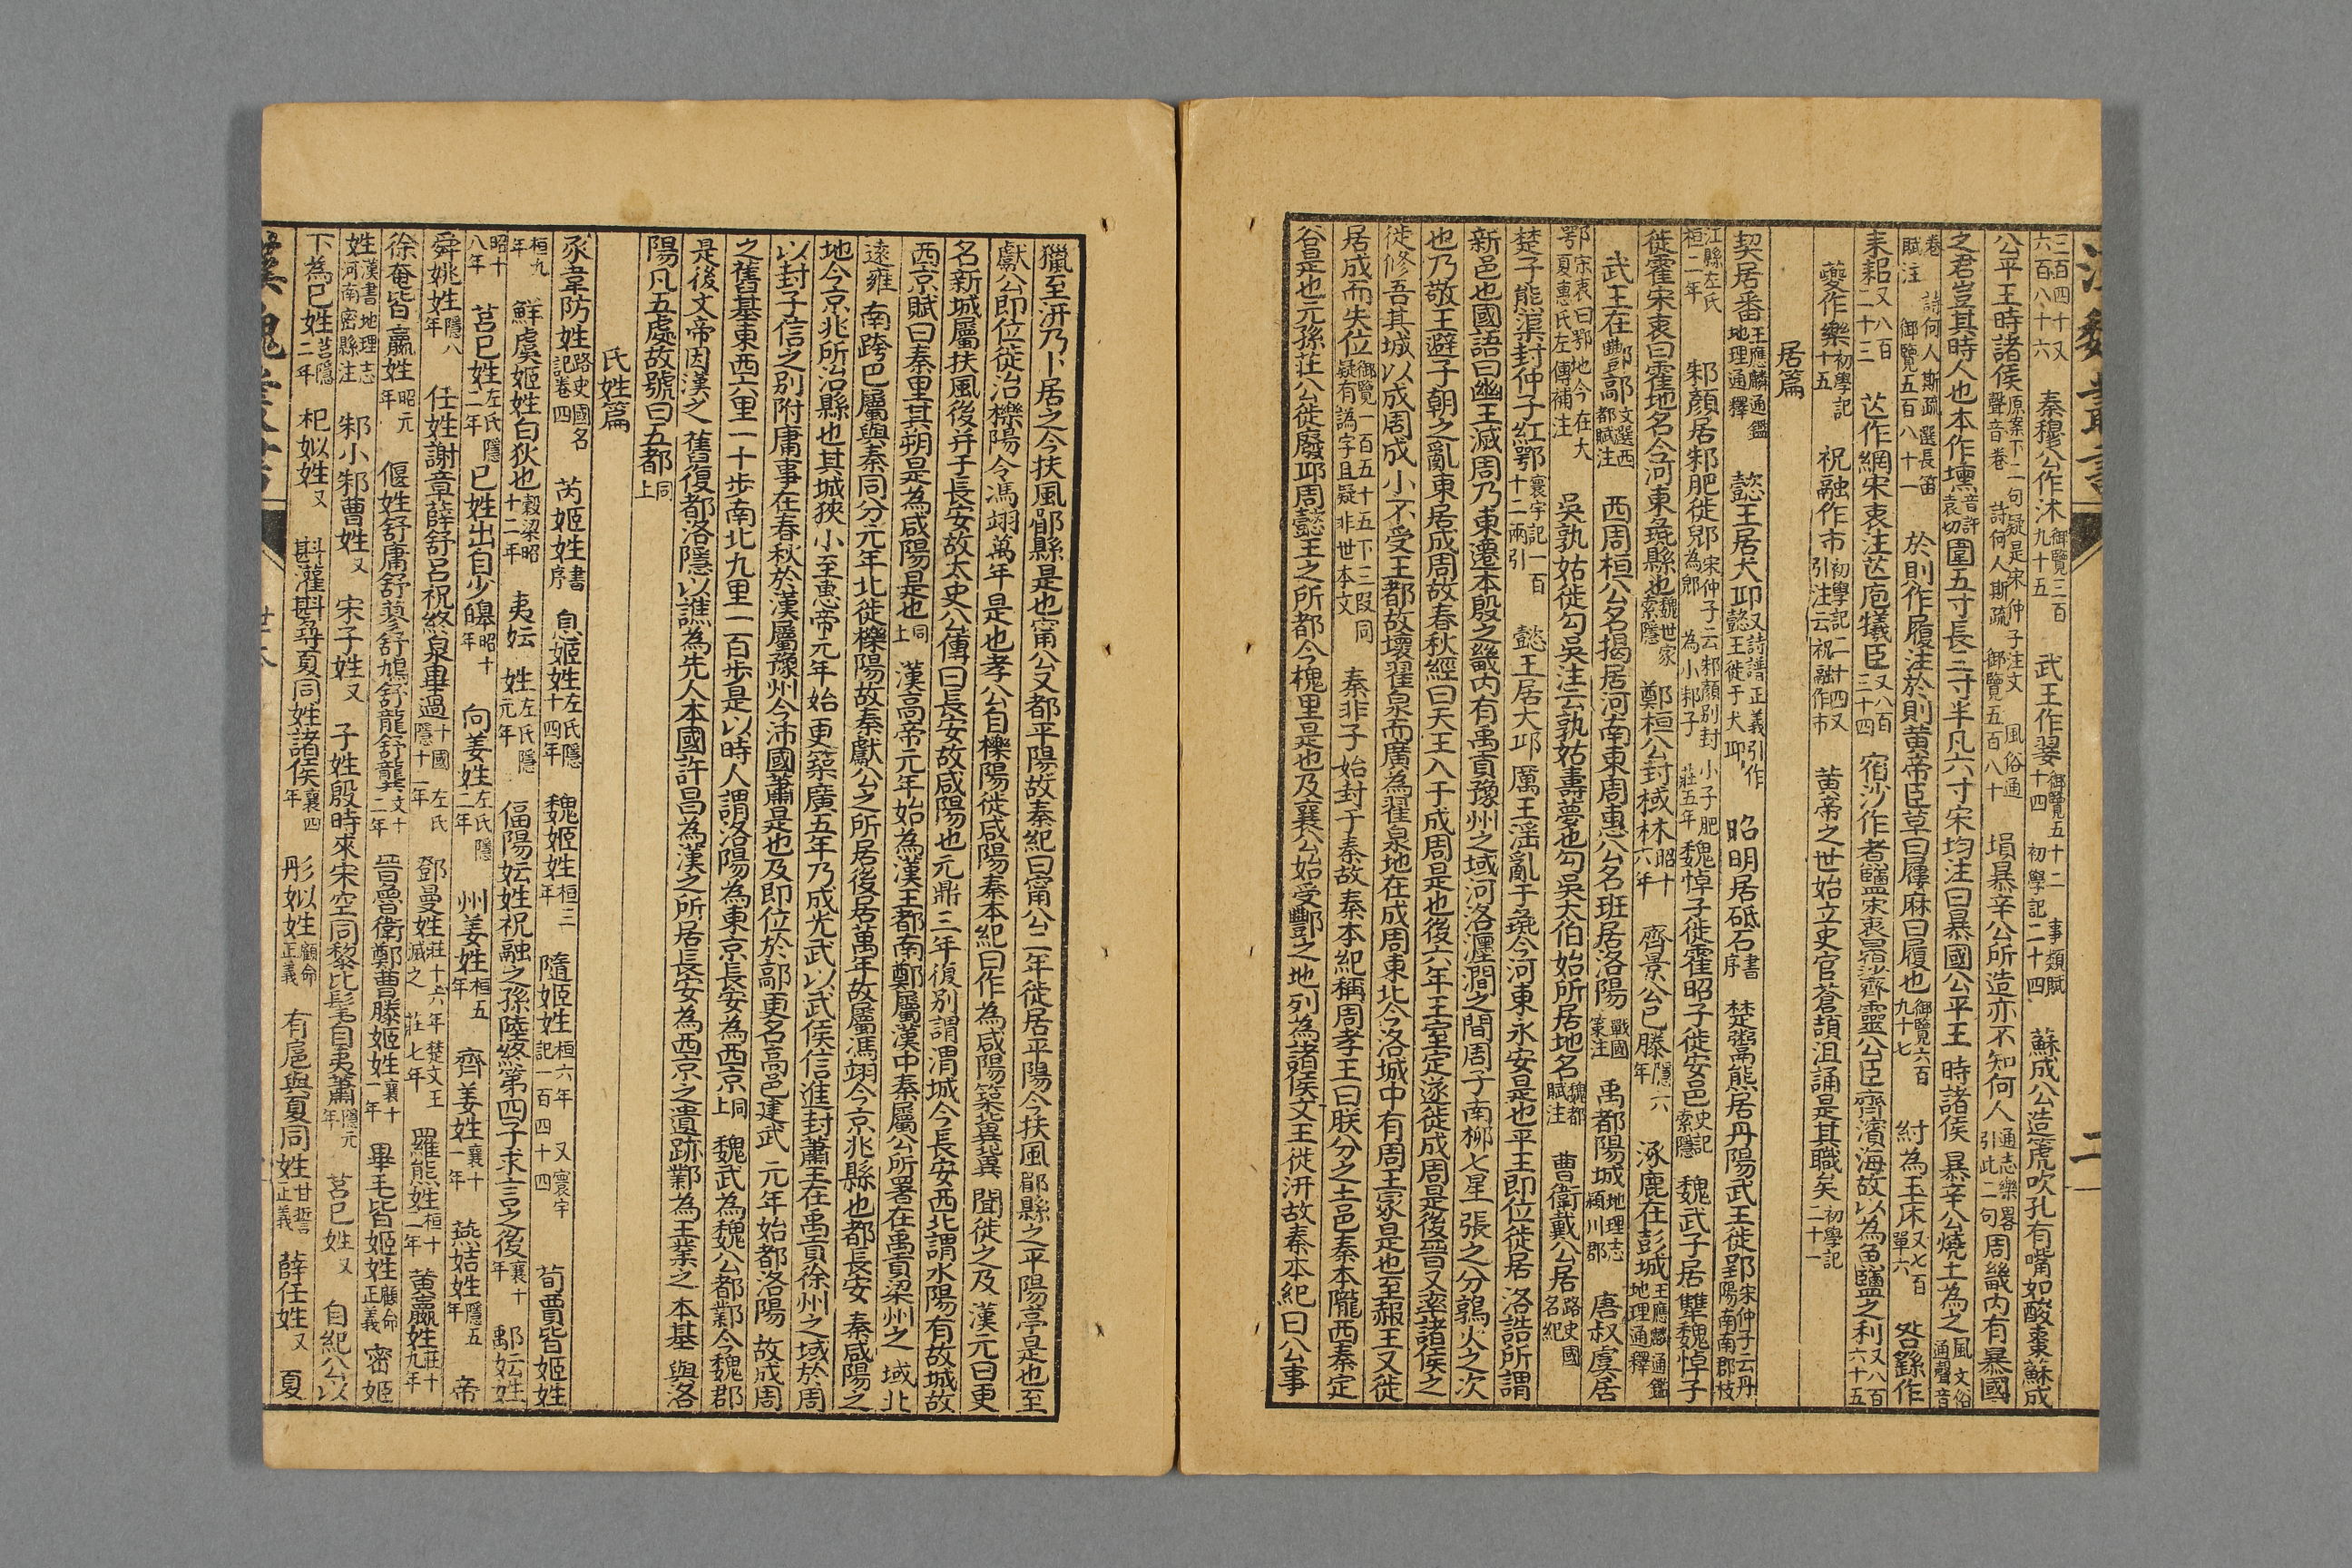 三百四十又六百八十六　秦穆公作沐御覽三百九十五　武王作翣御覽五十二十四　初學記二十四　事類賦　蘇成公造篪吹孔有嘴如酸棗蘇成
公平王時諸侯原案下二句疑是宋仲子注文聲音卷　詩何人斯疏　御覽五百八十　風俗通　塤暴辛公所造亦不知何人通志樂畧引此二句周畿內有暴國
之君豈其時人也本作壎音許袁切圍五寸長三寸半凡六寸宋均注曰暴國公平王時諸侯暴辛公燒土為之風俗通聲音
卷　詩何人斯疏　選長笛賦注　御覽五百八十一　於則作履注於則黃帝臣草曰屨麻曰履也御覽六百九十七　紂為玉床又七百單六　咎繇作
耒耜又八百二十三　苉作網宋衷注苉庖犧臣又八百三十四　宿沙作煮鹽宋衷曰宿沙齊靈公臣齊濱海故以為魚鹽之利又八百六十五
夔作樂初學記十五　祝融作市初學記二十四又引注云祝融作市　黃帝之世始立史官蒼頡沮誦是其職矣初學記二十一
居篇
契居番王應麟通鑑地理通釋　懿王居犬邱又詩譜正義引作懿王徙于犬邱　昭明居砥石書序　楚鬻熊居丹陽武王徙郢宋仲子云丹陽南南郡枝
江縣左氏桓二年　邾顏居邾肥徙郳宋仲子云邾顏別封小子肥為郳為小邾子莊五年　魏悼子徙霍昭子徙安邑史記索隱　魏武子居犨魏悼子
徙霍宋衷曰霍地名今河東彘縣也魏世家索隱　鄭桓公封棫林昭十六年　齊景公巳滕隱六年　涿鹿在彭城王應麟通鑑地理通釋
武王在酆鄗文選西都賦注　西周桓公名揭居河南東周惠公名班居洛陽戰國策注　禹都陽城地理志潁川郡　唐叔虞居
鄂宋衷曰鄂地今在大夏惠氏左傳補注　吳孰姑徙勾吳注云孰姑壽夢也勾吳太伯始所居地名魏都賦注　曹衛戴公居路史國名紀
楚子熊渠封仲子紅鄂寰宇記一百十二兩引　懿王居犬邱厲王淫亂于彘今河東永安是也平王即位徙居洛誥所謂
新邑也國語曰幽王滅周乃東遷本殷之畿內有禹貢豫州之域河洛瀍澗之間周子南柳七星張之分鶉火之次
也乃敬王避子朝之亂東居成周故春秋經曰天王入于成周是也後六年王室定遂徙成周是後晉又率諸侯之
徙修吾其城以成周成小不受王都故壞翟泉而廣為翟泉地在成周東北今洛城中有周王冢是也至赧王又徙
居成而失位御覽一百五十五下三叚同疑有譌字且疑非世本文　秦非子始封于秦故秦本紀稱周孝王曰朕分之土邑秦本隴西秦定
谷是也元孫莊公徙廢邱周懿王之所都今槐里是也及襄公始受酆之地列為諸侯文王徙汧故秦本紀曰公事
獵至汧乃卜居之今扶風郿縣是也甯公又都平陽故秦紀曰甯公二年徙居平陽今扶風郿縣之平陽亭是也至
獻公即位徙治櫟陽今馮翊萬年是也孝公自櫟陽徙咸陽秦本紀曰作為咸陽築冀冀聞徙之及漢元曰更
名新城屬扶風後幷于長安故太史公傳曰長安故咸陽也元鼎三年復別謂渭城今長安西北謂水陽有故城故
西京賦曰秦里其朔是為咸陽是也同上　漢高帝元年始為漢王都南鄭屬漢中秦屬公所署在禹貢梁州之域北
遠雍南跨巴屬與秦同分元年北徙櫟陽故秦獻公之所居後居萬年故屬馮翊今京兆縣也都長安秦咸陽之
地今京兆所治縣也其城狹小至惠帝元年始更築廣五年乃成光武以武侯信進封蕭王在禹貢徐州之域於周
以封子信之別附庸事在春秋於漢屬豫州今沛國蕭是也及即位於鄗更名高邑建武元年始都洛陽故成周
之舊基東西六里一十步南北九里一百步是以時人謂洛陽為東京長安為西京同上　魏武為魏公都鄴今魏郡
是後文帝因漢之舊復都洛隱以譙為先人本國許昌為漢之所居長安為西京之遺跡鄴為王業之本基與洛
陽凡五處故號曰五都同上
氏姓篇
豕韋防姓路史國名記卷四　芮姬姓書序　息姬姓左氏隱十四年　魏姬姓桓三年　隨姬姓桓六年又寰宇記一百四十四　荀賈皆姬姓
桓九年　鮮虞姬姓白狄也穀梁昭十二年　夷妘姓左氏隱元年　偪陽妘姓祝融之孫陸終第四子求言之後襄十年　鄅妘姓
昭十八年　莒巳姓左氏隱二年　巳姓出自少皞昭十年　向姜姓左氏隱二年　州姜姓桓五年　齊姜姓襄十一年　燕姞姓隱五年　帝
舜姚姓隱八年　任姓謝章薛舒呂祝終泉畢過十國左氏隱十一年　鄧曼姓莊十六年楚文王滅之莊七年　羅熊姓桓十二年　黃嬴姓莊十九年
徐奄皆嬴姓昭元年　偃姓舒庸舒蓼舒鳩舒龍舒龔文十二年　晉魯衛鄭曹滕姬姓襄十一年　畢毛皆姬姓顧命正義　密姬
姓漢書地理志河南密縣注　邾小邾曹姓又　宋子姓又　子姓殷時來宋空同黎比髦自夷蕭隱元年　莒己姓又　自紀公以
下為巳姓莒隱二年　杞姒姓又　斟灌斟尋夏同姓諸侯襄四年　彤姒姓顧命正義　有扈與夏同姓甘誓正義　薛任姓又　夏